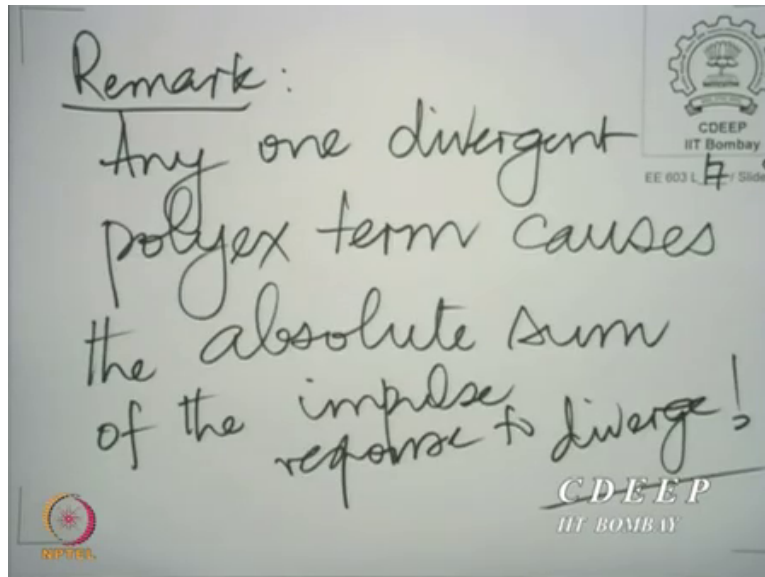 Remark:
Any one divergent
polyex term causes
the absolute sum
of the impulse
response to diverge!
CDEEP
IIT Bombay
EE 603 L 7 / Slide
CDEEP
IIT BOMBAY
NPTEL